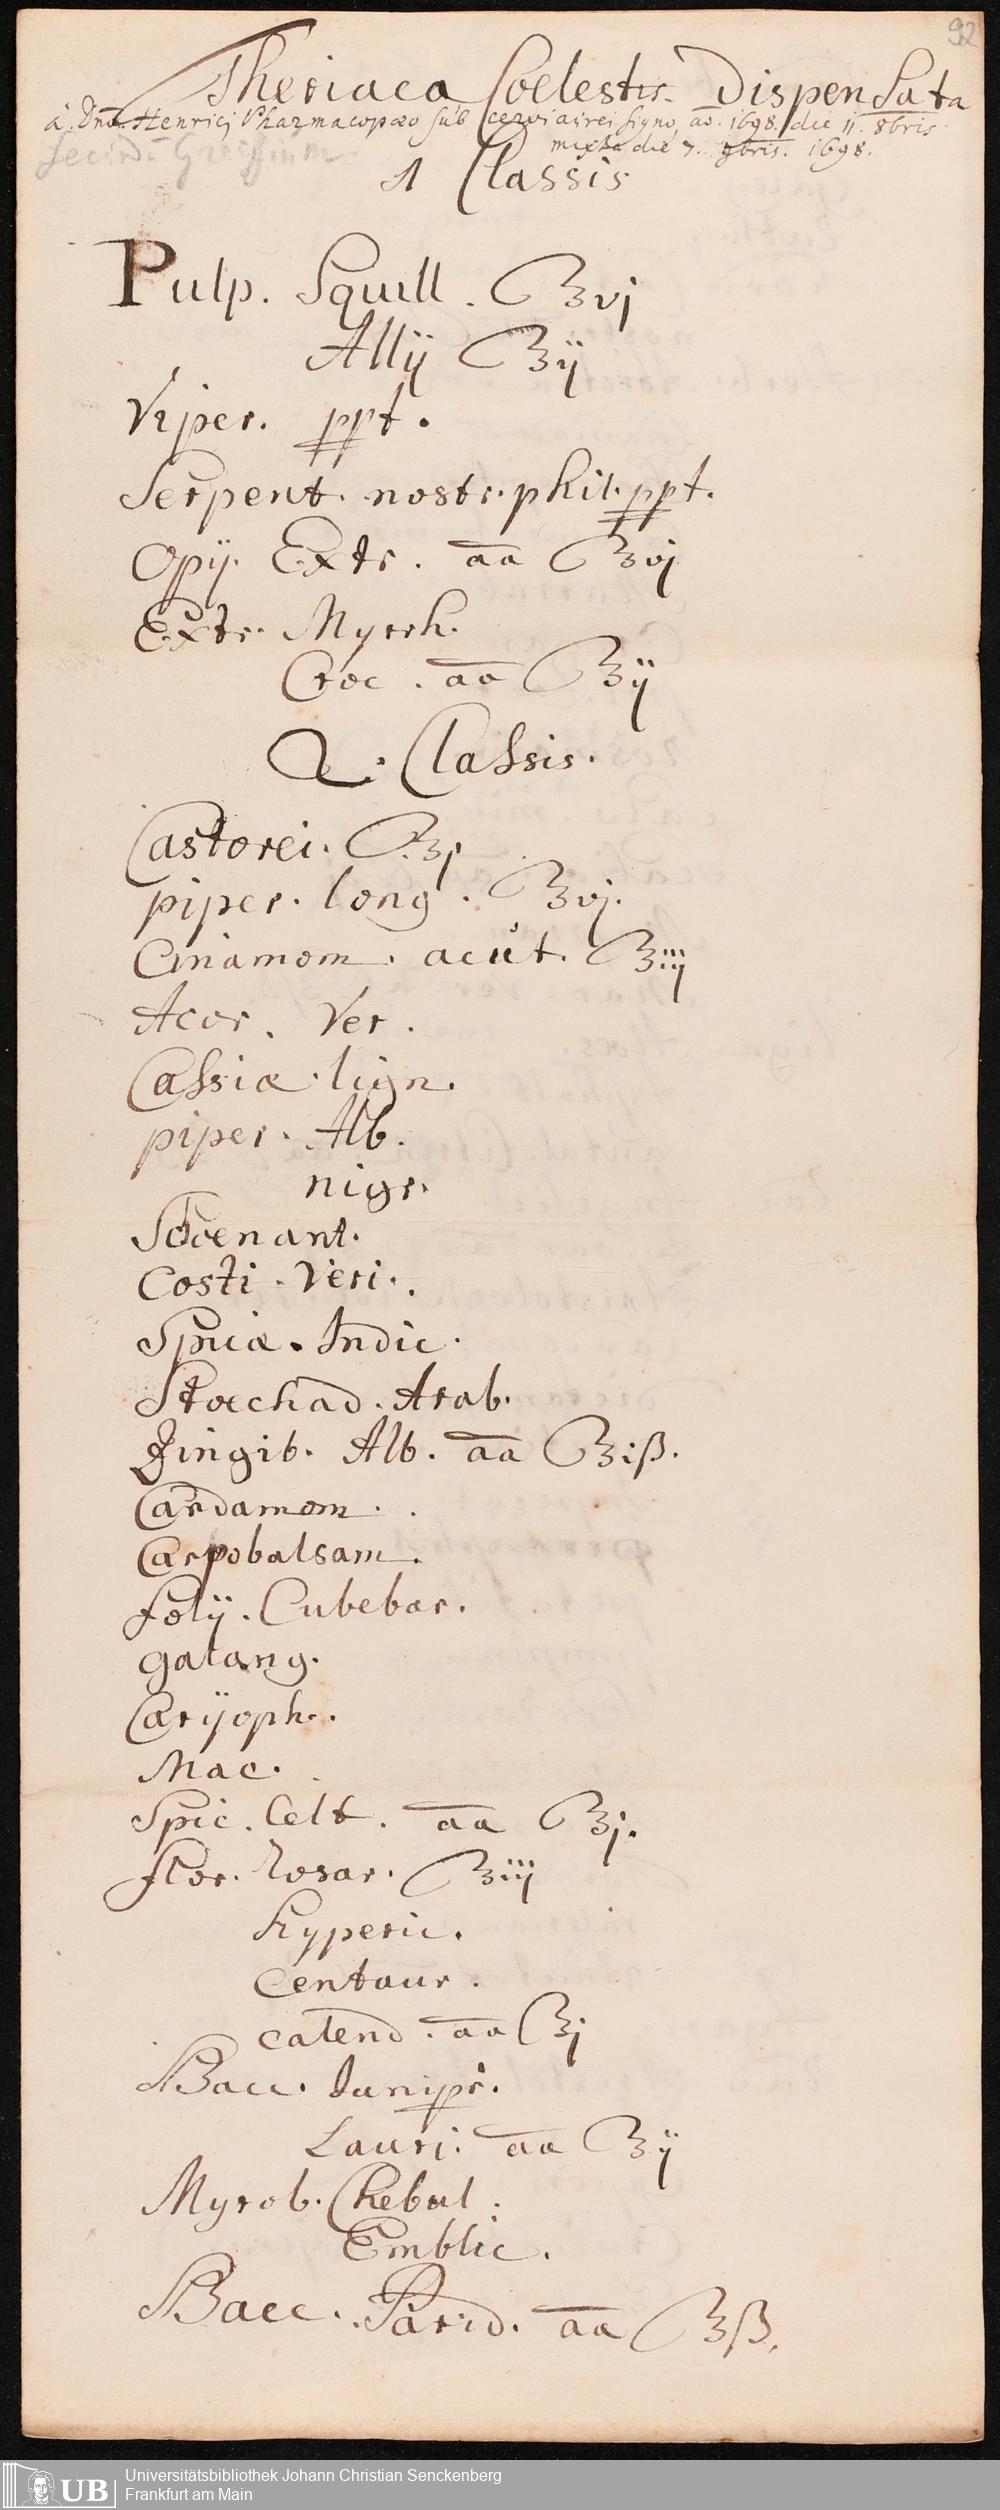 92
Theriaca Coelestis Dispensata
à Dno. Henricj Pharmacopæo sub cervi airei signo, ao. 1698. die 11. 8bris
mixta die 7. 9bris. 1698.
1 Classis
Pulp. Squill. ℥vj
Allÿ ℥ij
Viper. ppt.
Serpent. nostr. phil. ppt.
Opÿ. Extr. aa ℥vj
Extr. Myrrh.
Croc. aa ℥ij
2. Classis.
Castorei. ℥j
piper. long. ℥vj.
Cinamom. acut. ℥iij
Acor. Ver.
Cassiæ. lign.
piper. Alb.
nigr.
Schoenant.
Costi. Veri.
Spicæ. Indic.
Stoechad. Arab.
Zingib. Alb. aa ℥iß.
Cardamom.
Carpobalsam.
folÿ. Cubebar.
galang.
Carÿoph.
Mac.
Spic. Celt. aa ℥j.
flor. rosar. ℥iij
hyperic.
Centaur.
calend. aa ℥j
Bacc. Junipr.
Laurj. aa ℥ij
Myrob. Chebul.
Emblic.
Bacc. Parid. aa ℥ß.
UB
Universitätsbibliothek Johann Christian Senckenberg
Frankfurt am Main